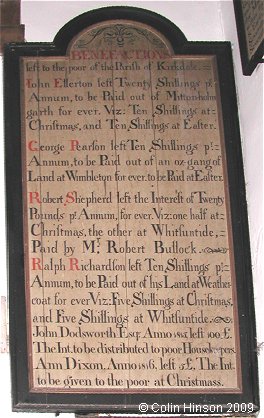 BENEFACTIONS
left to the poor of the Parish of Kirkdale.
John Ellerton left Twenty Shillings pr:
Annum, to be Paid out of Mutton-holm
garth for ever. Viz: Ten Shillings at
Christmas, and Ten Shillings at Easter.
George Reason left Ten Shillings pr:
Annum, to be Paid out of an ox-gang of
Land at Wimbleton for ever. to be Paid at Easter.
Robert Shepherd left the Interest of Twenty
Pounds pr: Annum, for ever. Viz: one half at
Christmas, the other at Whitsuntide,
Paid by Mr. Robert Bullock.
Ralph Richardson left Ten Shillings pr:
Annum, to be Paid out of his Land at Weather=
coat for ever Viz: Five Shillings at Christmas,
and Five Shillings at Whitsuntide.
John Dodsworth Esqr. Anno 1815 left 100 £.
The Int. to be distributed to poor Housekeepers.
Ann Dixon, Anno 1816, left 5£. The Int.
to be given to the poor at Christmass.
© Colin Hinson 2009